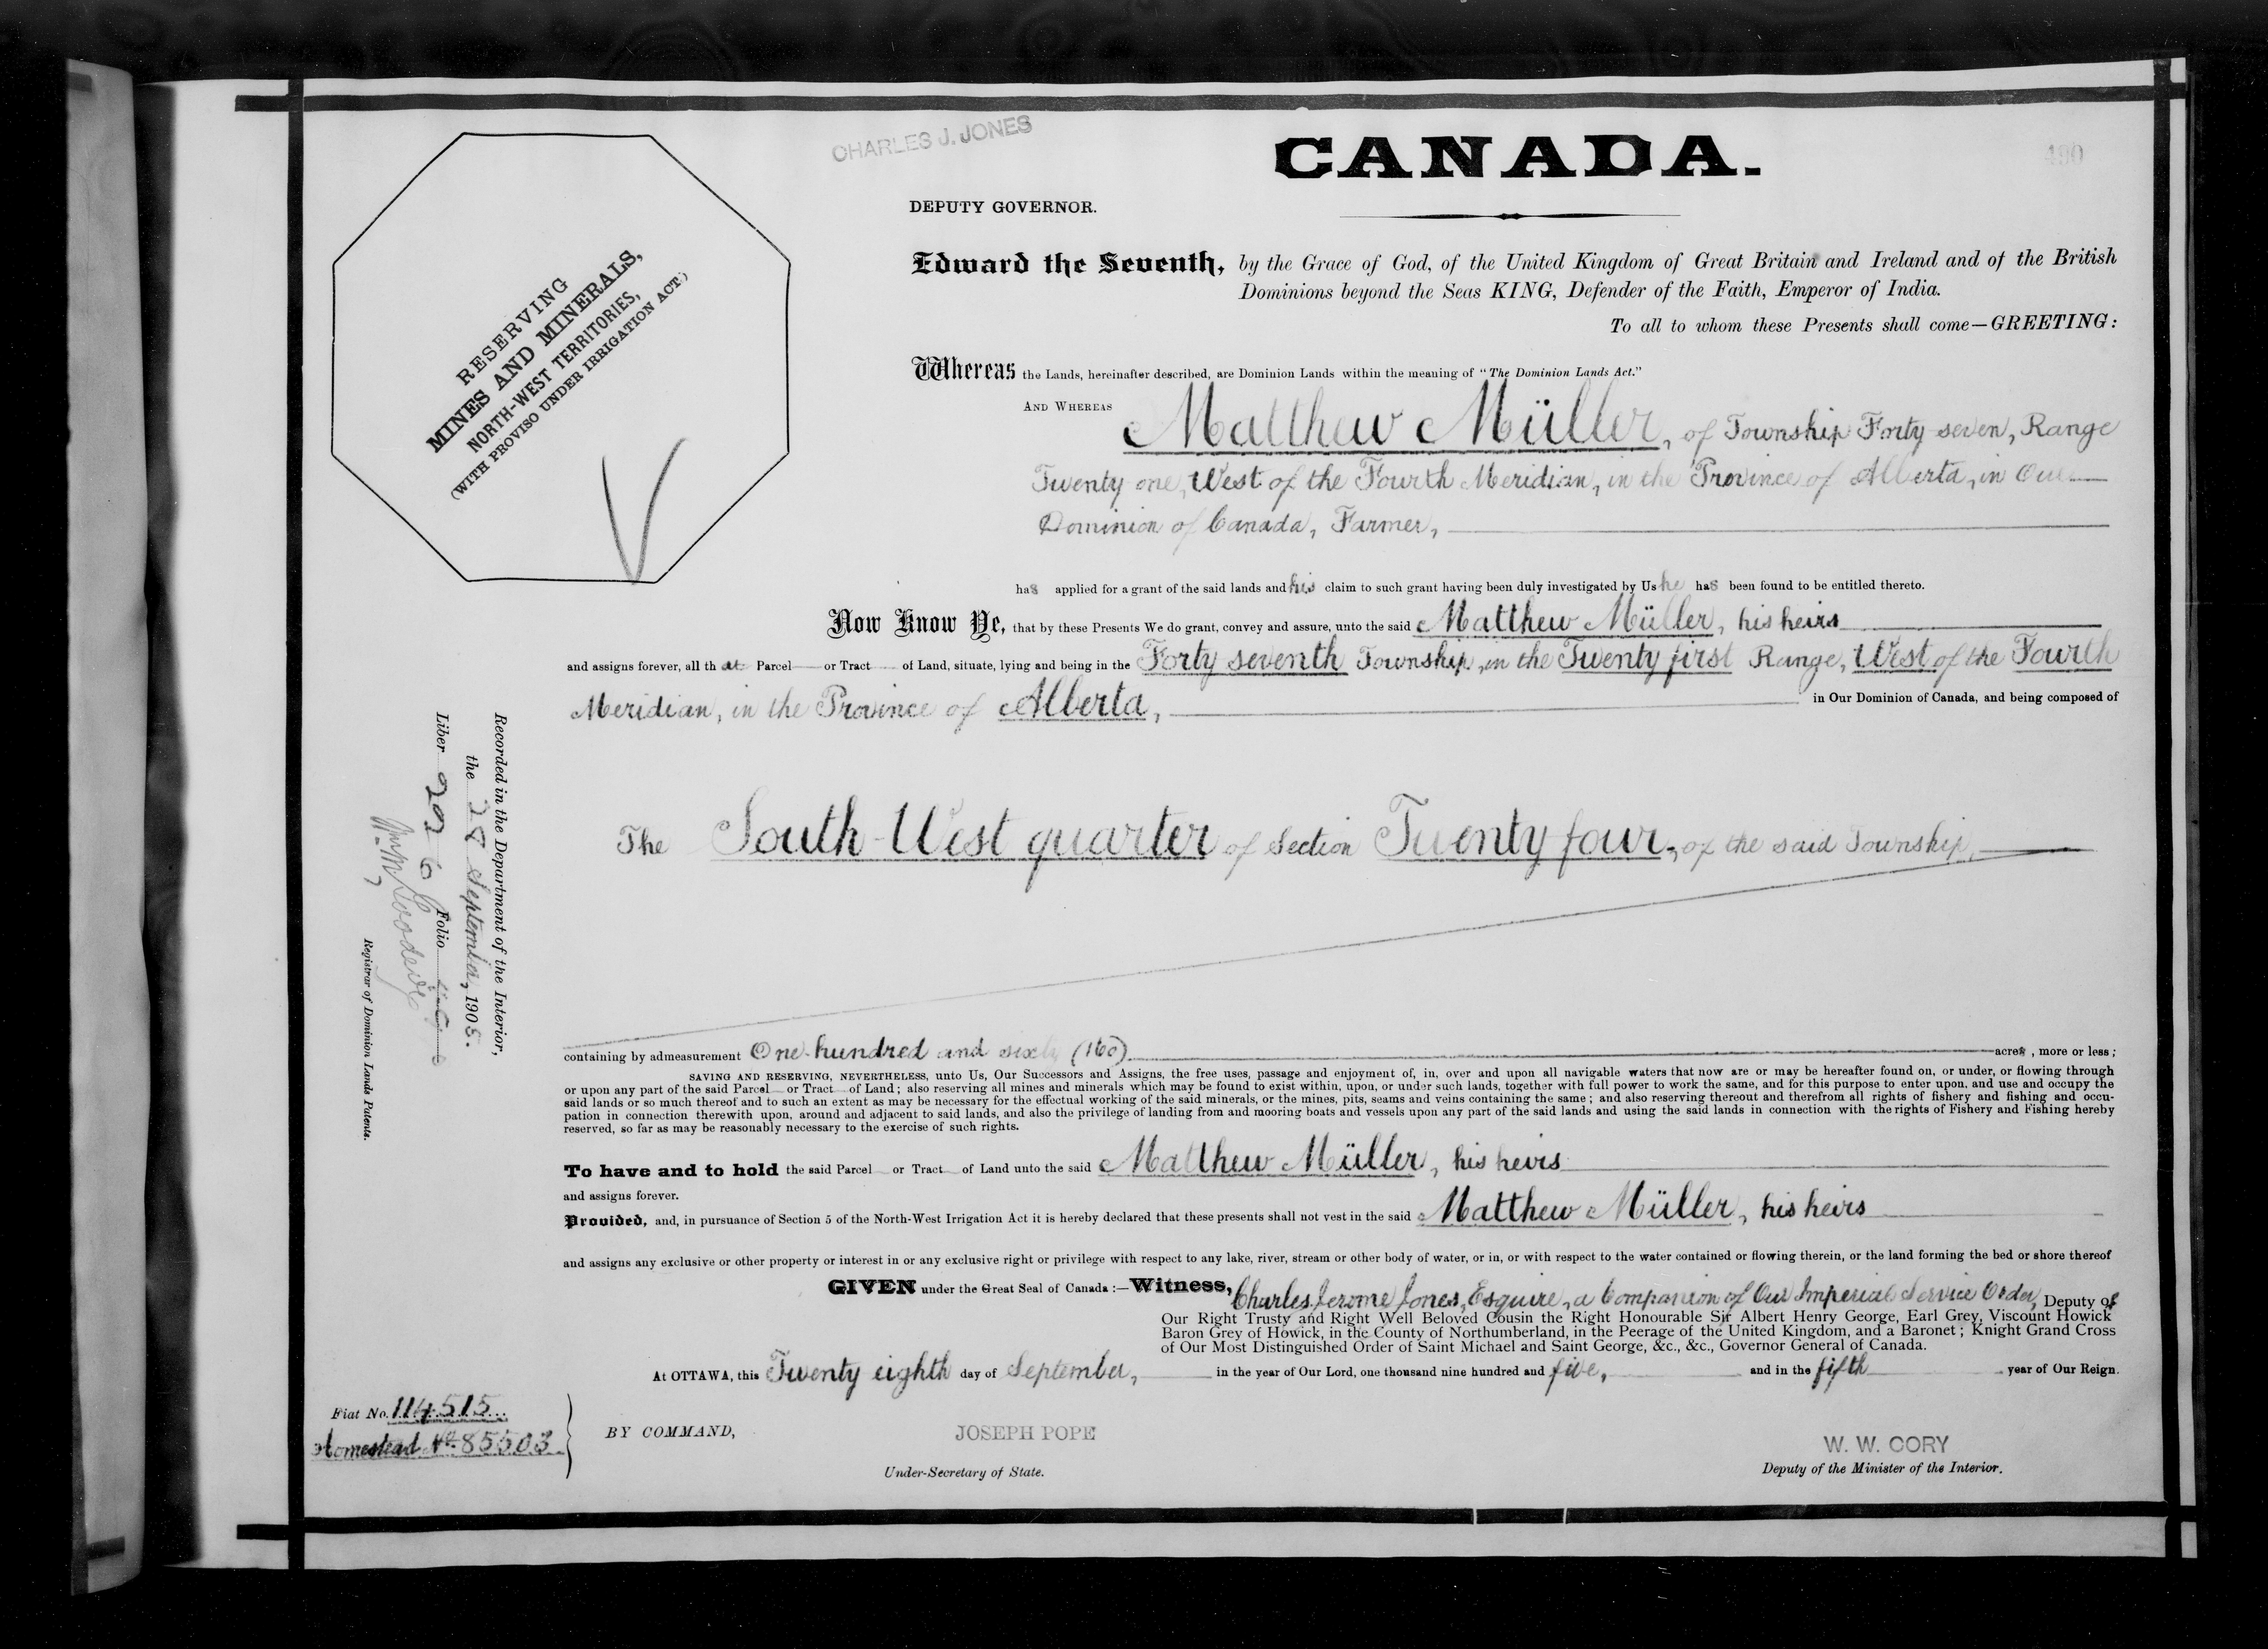 CHARLES J. JONES
CANADA.
490
DEPUTY GOVERNOR.
RESERVING
MINES AND MINERALS,
NORTH-WEST TERRITORIES,
(WITH PROVISO UNDER IRRIGATION ACT.)
Edward the Seventh, by the Grace of God, of the United Kingdom of Great Britain and Ireland and of the British
Dominions beyond the Seas KING, Defender of the Faith, Emperor of India.
To all to whom these Presents shall come—GREETING:
Whereas the Lands, hereinafter described, are Dominion Lands within the meaning of "The Dominion Lands Act."
AND WHEREAS Matthew Müller, of Township Forty seven, Range
Twenty one, West of the Fourth Meridian, in the Province of Alberta, in Our
Dominion of Canada, Farmer,
has applied for a grant of the said lands and his claim to such grant having been duly investigated by Us he has been found to be entitled thereto.
Now Know Ye, that by these Presents We do grant, convey and assure, unto the said Matthew Müller, his heirs
and assigns forever, all that Parcel or Tract of Land, situate, lying and being in the Forty seventh Township, in the Twenty first Range, West of the Fourth
Meridian, in the Province of Alberta, in Our Dominion of Canada, and being composed of
The South-West quarter of Section Twenty four, of the said Township,
Recorded in the Department of the Interior,
the 28 September, 1905.
Liber Folio
Registrar of Dominion Lands Patents.
containing by admeasurement One hundred and sixty (160) acres, more or less;
SAVING AND RESERVING, NEVERTHELESS, unto Us, Our Successors and Assigns, the free uses, passage and enjoyment of, in, over and upon all navigable waters that now are or may be hereafter found on, or under, or flowing through
or upon any part of the said Parcel or Tract of Land; also reserving all mines and minerals which may be found to exist within, upon, or under such lands, together with full power to work the same, and for this purpose to enter upon, and use and occupy the
said lands or so much thereof and to such an extent as may be necessary for the effectual working of the said minerals, or the mines, pits, seams and veins containing the same; and also reserving thereout and therefrom all rights of fishery and fishing and occu-
pation in connection therewith upon, around and adjacent to said lands, and also the privilege of landing from and mooring boats and vessels upon any part of the said lands and using the said lands in connection with the rights of Fishery and Fishing hereby
reserved, so far as may be reasonably necessary to the exercise of such rights.
To have and to hold the said Parcel or Tract of Land unto the said Matthew Müller, his heirs
and assigns forever.
Provided, and, in pursuance of Section 5 of the North-West Irrigation Act it is hereby declared that these presents shall not vest in the said Matthew Müller, his heirs
and assigns any exclusive or other property or interest in or any exclusive right or privilege with respect to any lake, river, stream or other body of water, or in, or with respect to the water contained or flowing therein, or the land forming the bed or shore thereof
GIVEN under the Great Seal of Canada:—Witness, Charles Jerome Jones, Esquire, a Companion of Our Imperial Service Order, Deputy of
Our Right Trusty and Right Well Beloved Cousin the Right Honourable Sir Albert Henry George, Earl Grey, Viscount Howick
Baron Grey of Howick, in the County of Northumberland, in the Peerage of the United Kingdom, and a Baronet; Knight Grand Cross
of Our Most Distinguished Order of Saint Michael and Saint George, &c., &c., Governor General of Canada.
At OTTAWA, this Twenty eighth day of September, in the year of Our Lord, one thousand nine hundred and five, and in the fifth year of Our Reign.
Fiat No. 114515
Homestead No. 85503
BY COMMAND,
JOSEPH POPE
Under-Secretary of State.
W. W. CORY
Deputy of the Minister of the Interior.